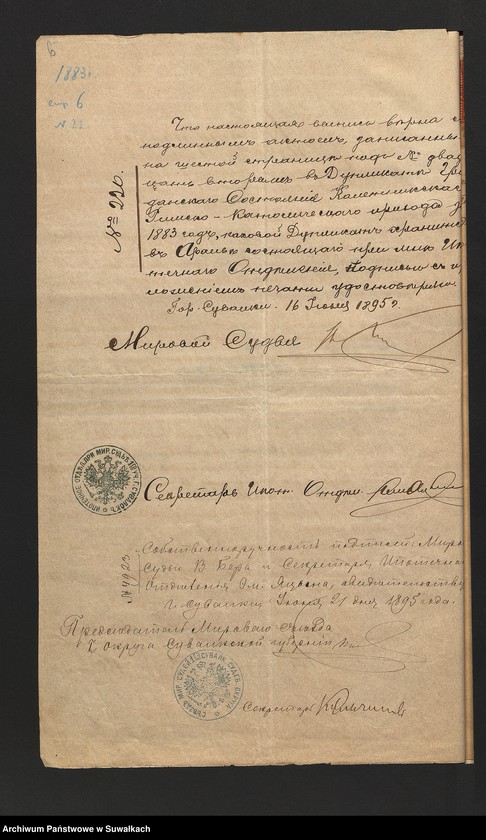 6
1883г.
стр 6
N 22
№ 220.
Что настоящая выпись верна с
подлинным актом, записанным
на шестой странице под № двад
цать вторым в Дупликате Граж
данского Состояния Кальварийского
Римско-Католического прихода за
1883 год, каковой Дупликат хранится
в Архиве состоящаго при мне Ипо
течнаго Отделения, подписью с при
ложением печати удостоверяю.
Гор. Сувалки. 16 Июня 1895 г.
Мировой Судья
Секретарь Ипот. Отдел.
№ 4923
Собственноручность подписей: Миро
Судьи В Бера и Секретаря Ипотечна
Отделения Ом. Яцына, свидетельству
г. Сувалки Июня 21 дня 1895 года.
Председатель Мироваго Съезда
I округа Сувалкской губернии
Секретарь
Archiwum Państwowe w Suwałkach